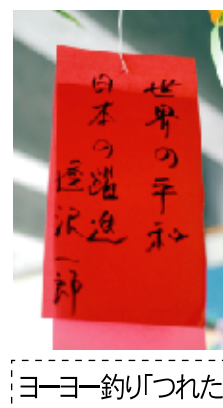 世界の平和
日本の躍進
逢沢一郎
ヨーヨー釣り「つれた